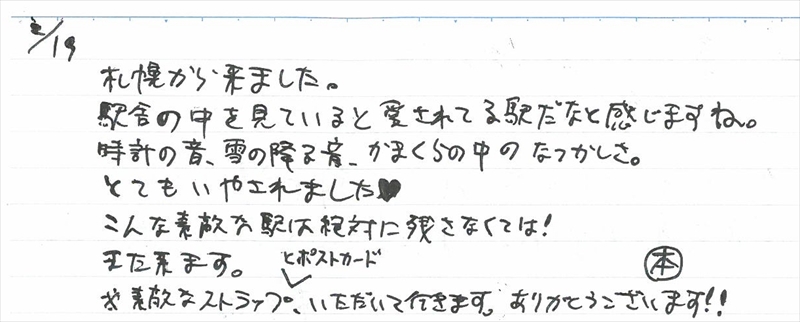 2/19
札幌から来ました。
駅舎の中を見ていると愛されてる駅だなと感じますね。
時計の音、雪の降る音、かまくらの中のなつかしさ。
とてもいやされました♥
こんな素敵な駅は絶対に残さなくては!
また来ます。
とポストカード
本
☆素敵なストラップ、いただいて行きます。ありがとうございます!!